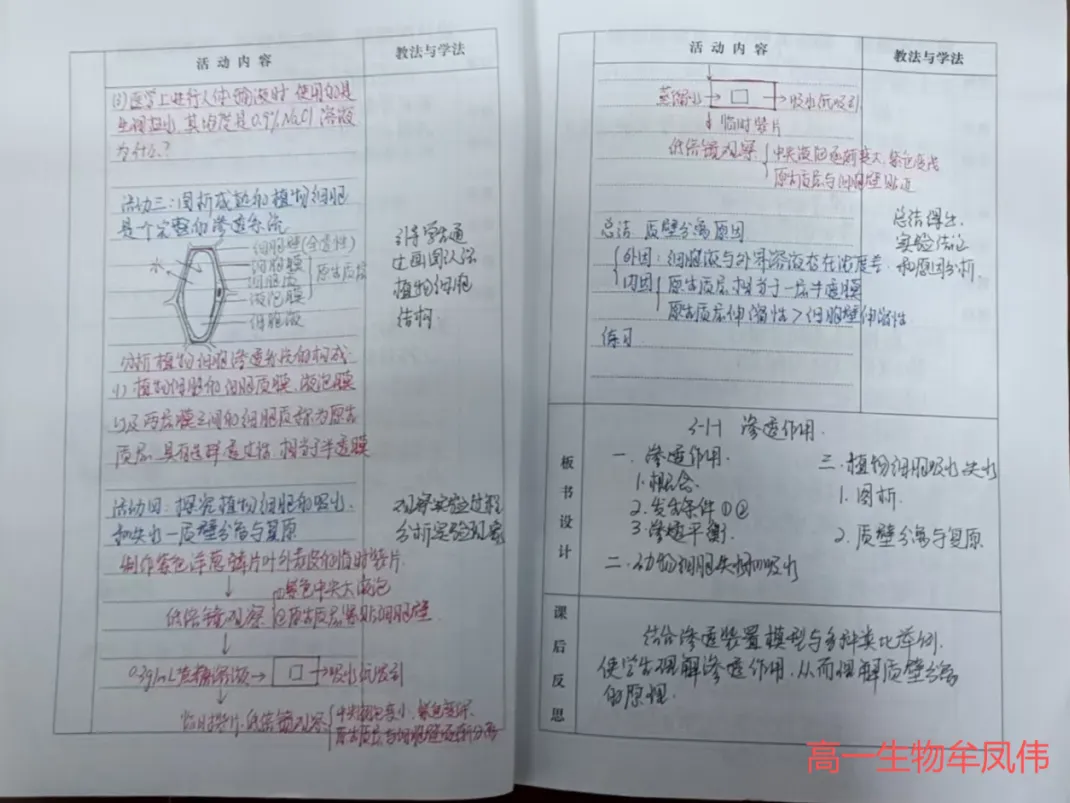 活动内容
教法与学法
(3)医学上进行人体输液时,使用的是
生理盐水,其浓度是0.9% NaCl 溶液
为什么?
活动三:图析成熟的植物细胞
是个完整的渗透系统
水
细胞壁(全透性)
细胞膜
细胞质
液泡膜
原生质层
细胞液
引导学生通
过画图认识
植物细胞
结构.
分析植物细胞渗透系统的构成
(1) 植物细胞的细胞质膜、液泡膜
以及两层膜之间的细胞质称为原生
质层,具有选择透过性,相当于半透膜
活动四:探究植物细胞的吸水
和失水—质壁分离与复原
观察实验过程
分析实验现象
制作紫色洋葱鳞片叶外表皮的临时装片
低倍镜观察
①紫色中央大液泡
②原生质层紧贴细胞壁
0.3g/mL蔗糖溶液→
→吸水纸吸引
临时装片,低倍镜观察
中央液泡变小,紫色变深
原生质层与细胞壁逐渐分离
活动内容
教法与学法
蒸馏水→
→吸水纸吸引
↓临时装片
低倍镜观察
中央液泡逐渐变大,紫色变浅
原生质层与细胞壁贴近
总结:质壁分离原因
外因:细胞液与外界溶液存在浓度差
内因
原生质层相当于一层半透膜
原生质层伸缩性>细胞壁伸缩性
练习
总结得出
实验结论
和原因分析.
板书设计
3-1-1 渗透作用.
一. 渗透作用.
1.概念.
2.发生条件①②
3.渗透平衡.
二.动物细胞失水和吸水
三.植物细胞吸水失水
1.图析.
2.质壁分离与复原
课后反思
结合渗透装置模型与多种类比举例,
使学生理解渗透作用,从而理解质壁分离
的原理.
高一生物牟凤伟